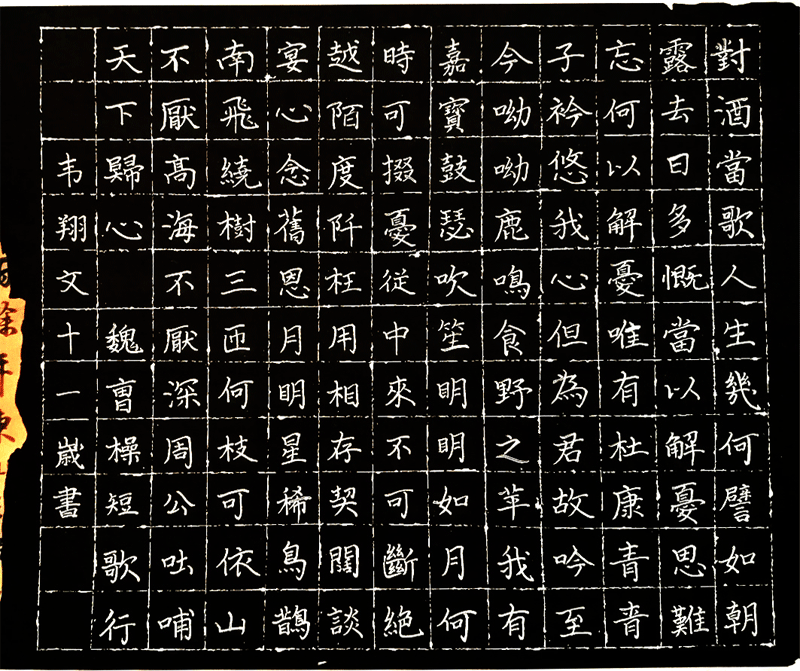 對酒當歌人生幾何譬如朝
露去日多慨當以解憂思難
忘何以解憂唯有杜康青青
子衿悠我心但為君故吟至
今呦呦鹿鳴食野之苹我有
嘉寶鼓瑟吹笙明明如月何
時可掇憂從中來不可斷絕
越陌度阡枉用相存契闊談
宴心念舊恩月明星稀鳥鵲
南飛繞樹三匝何枝可依山
不厭高海不厭深周公吐哺
天下歸心 魏曹操短歌行
韦翔文十一歲書